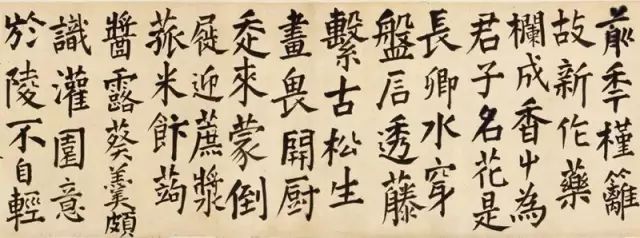 前年槿籬
故新作藥
欄成香屮為
君子名花是
長卿水穿
盤石透藤
繫古松生
畫畏開厨
走來蒙倒
屣迎蔗漿
菰米飰蒟
醬露葵羹頗
識灌園意
於陵不自輕